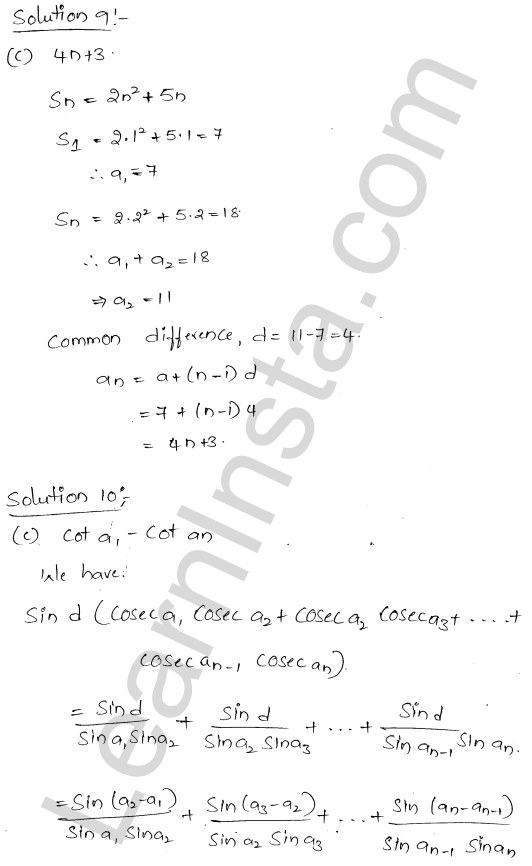 Solution 9:-
(C) 4n+3.
Sn = 2n²+5n
S1 = 2.1²+5.1=7
∴ a1=7
Sn = 2.2²+5.2=18.
∴ a1+a2=18
⇒ a2=11
Common difference, d= 11-7=4.
an = a+(n-1)d
= 7+(n-1)4
= 4n+3.
Solution 10:-
(C) Cot a1 - Cot an
We have:
Sin d (Cosec a1 Cosec a2 + Cosec a2 Cosec a3+ ....+
Cosec an-1 Cosec an).
= Sin d / Sin a1 Sin a2 + Sin d / Sin a2 Sin a3 + ... + Sin d / Sin an-1 Sin an.
= Sin (a2-a1) / Sin a1 Sin a2 + Sin (a3-a2) / Sin a2 Sin a3 + ... + Sin (an-an-1) / Sin an-1 Sin an
LearnInsta.com